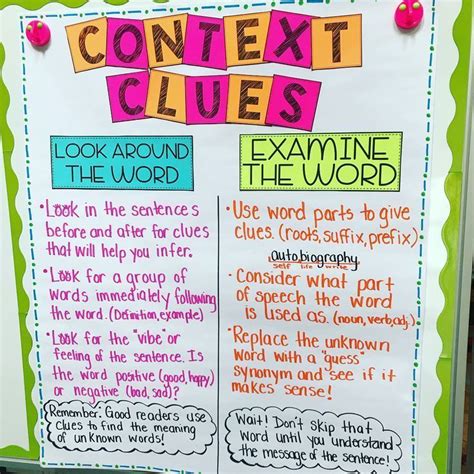 CONTEXT
CLUES
LOOK AROUND
THE WORD
• Look in the sentences
before and after for clues
that will help you infer.
• Look for a group of
words immediately following
the word. (Definition, example)
• Look for the "vibe" or
feeling of the sentence. Is
the word positive (good, happy)
or negative (bad, sad)?
Remember: Good readers use
Clues to find the meaning
of unknown words!
EXAMINE
THE WORD
• Use word parts to give
clues. (roots, suffix, prefix)
autobiography
self life write
• Consider what part
of speech the word
is used as. (noun, verb, adj.)
• Replace the unknown
word with a "guess"
synonym and see if it
makes sense!
Wait! Don't skip that
word until you understand
the message of the sentence!